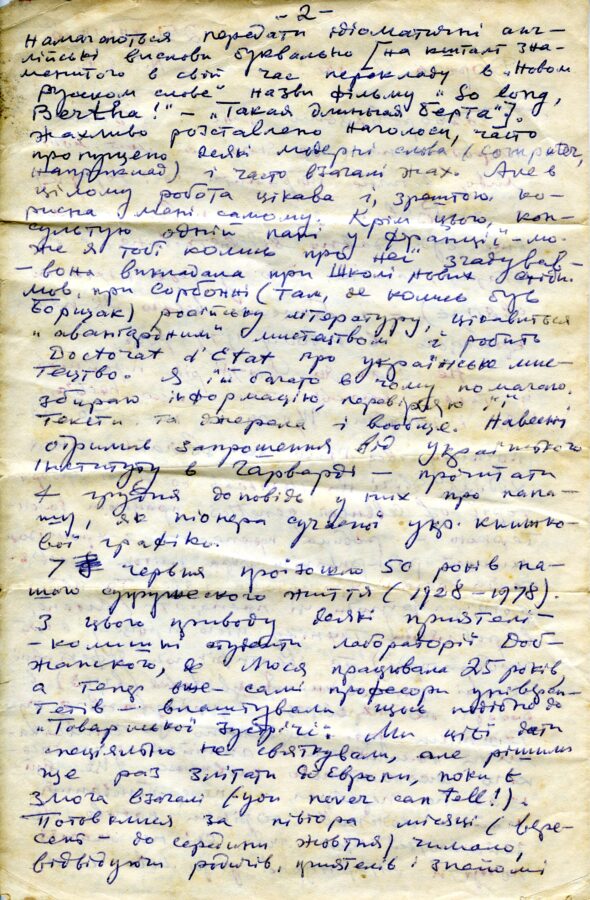 - 2 -
намагаються передати ідіоматичні анг-
лійські вислови буквально [на кшталт зна-
менитого в свій час перекладу в „Новом
русском слове" назви фільму „So long,
Bertha!" – „Такая длинная Берта"],
жахливо розставлено наголоси, часто
пропущено деякі модерні слова (computer,
наприклад) і часто взагалі жах. Але в
цілому робота цікава і, зрештою ко-
рисна й мені самому. Крім цього, кон-
сультую одній пані у Франції – мо-
же я тобі колись про неї згадував –
– вона викладала при Школі нових східн.
мов при Сорбонні (там, де колись був
Борщак) російську літературу, цікавиться
„авангардним" мистецтвом і робить
Doctorat d'Etat про українське мис-
тецтво. Я їй багато в чому помагаю,
збираю інформацію, перевіряю її
тексти та джерела і вообще. Навесні
отримав запрошення від українського
Інституту в Гарварді – прочитати
4 грудня доповідь у них про папа-
шу, як піонера сучасної укр. книжко-
вої графіки.
7 червня проізошло 50 років на-
шого супружеского життя (1928–1978).
З цього приводу деякі приятелі –
– колишні студенти лабораторії Доб-
жанского, де Люся працювала 25 років,
а тепер вже самі професори універси-
тетів – влаштували щось подібне до
„Товариської зустрічі". Ми цієї дати
спеціально не святкували, але рішили
ще раз злітати до Европи, поки є
змога взагалі (you never can tell!).
Готовимся за півтора місяці (вере-
сень – до середини жовтня) чимало,
відвідуючи родичів, приятелів і знайомі